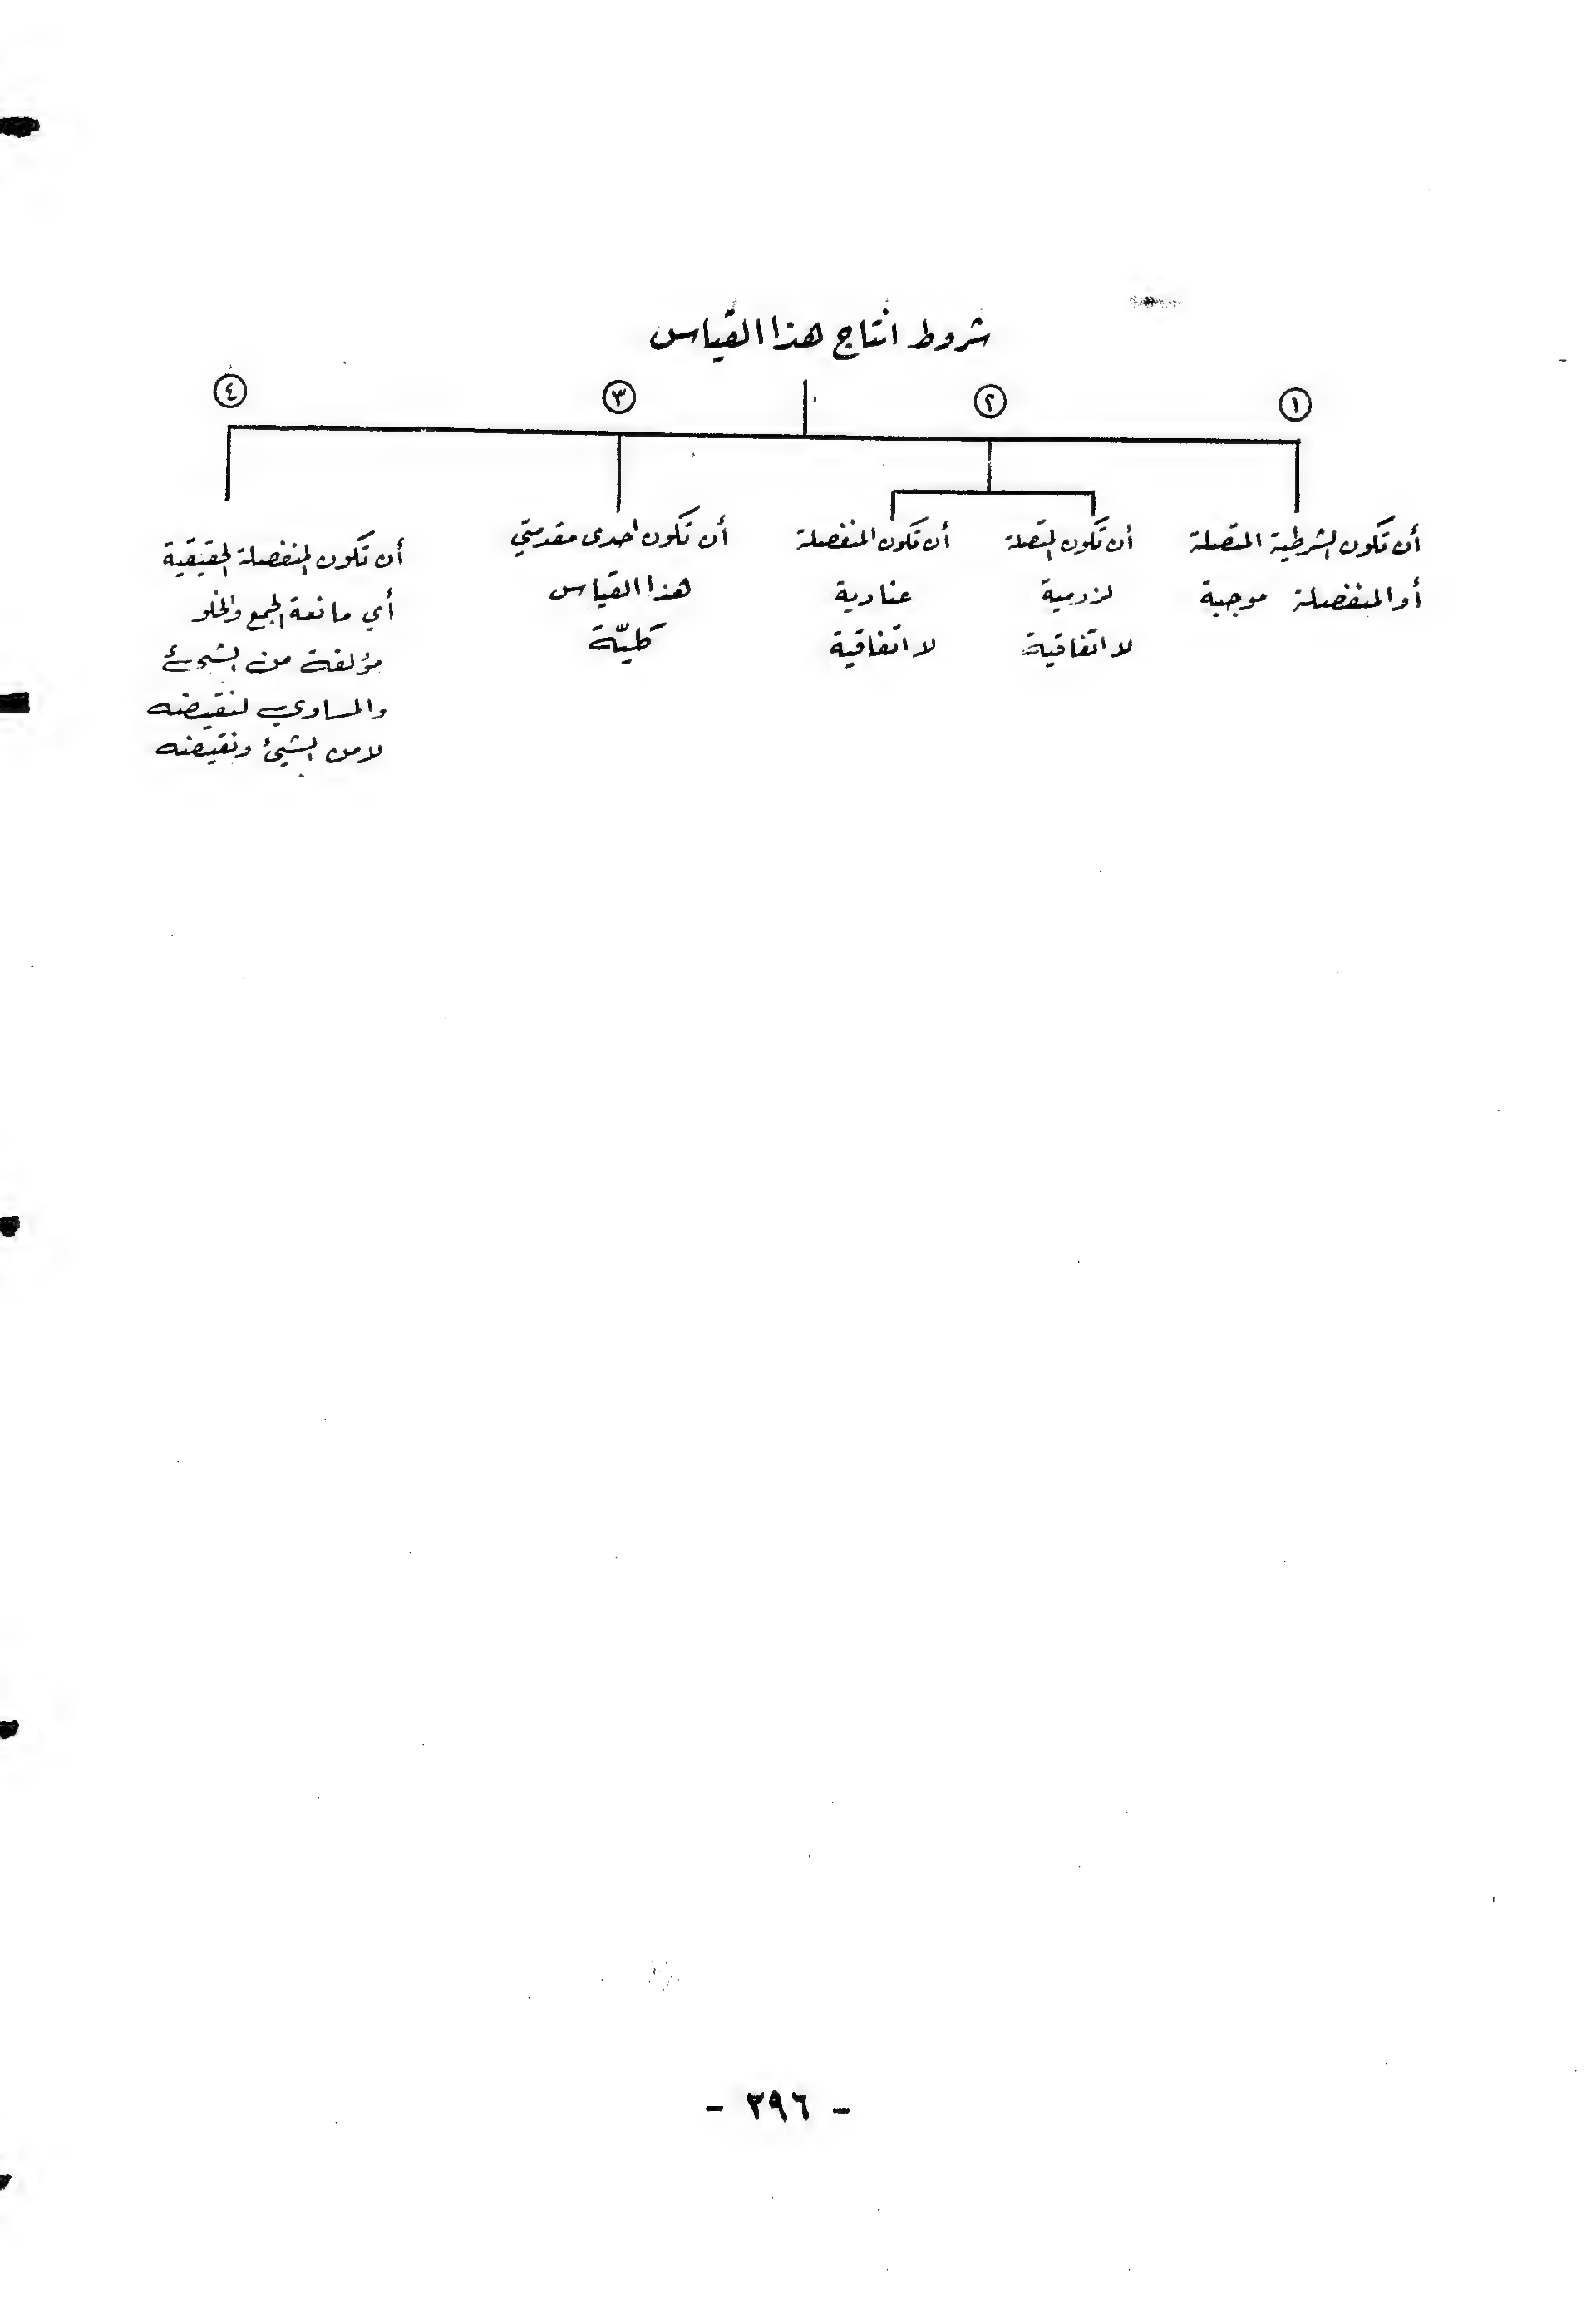 شروط انتاج هذا القياس
١
أن تكون الشرطية المتصلة
أو المنفصلة موجبة
٢
أن تكون المتصلة
لزومية
لا اتفاقية
أن تكون المنفصلة
عنادية
لا اتفاقية
٣
أن تكون احدى مقدمتي
هذا القياس
كليّة
٤
أن تكون المنفصلة الحقيقية
أي مانعة الجمع والخلو
مؤلفة من الشيئ
والمساوي لنقيضه
لا من الشيئ ونقيضه
- ٢٩٦ -